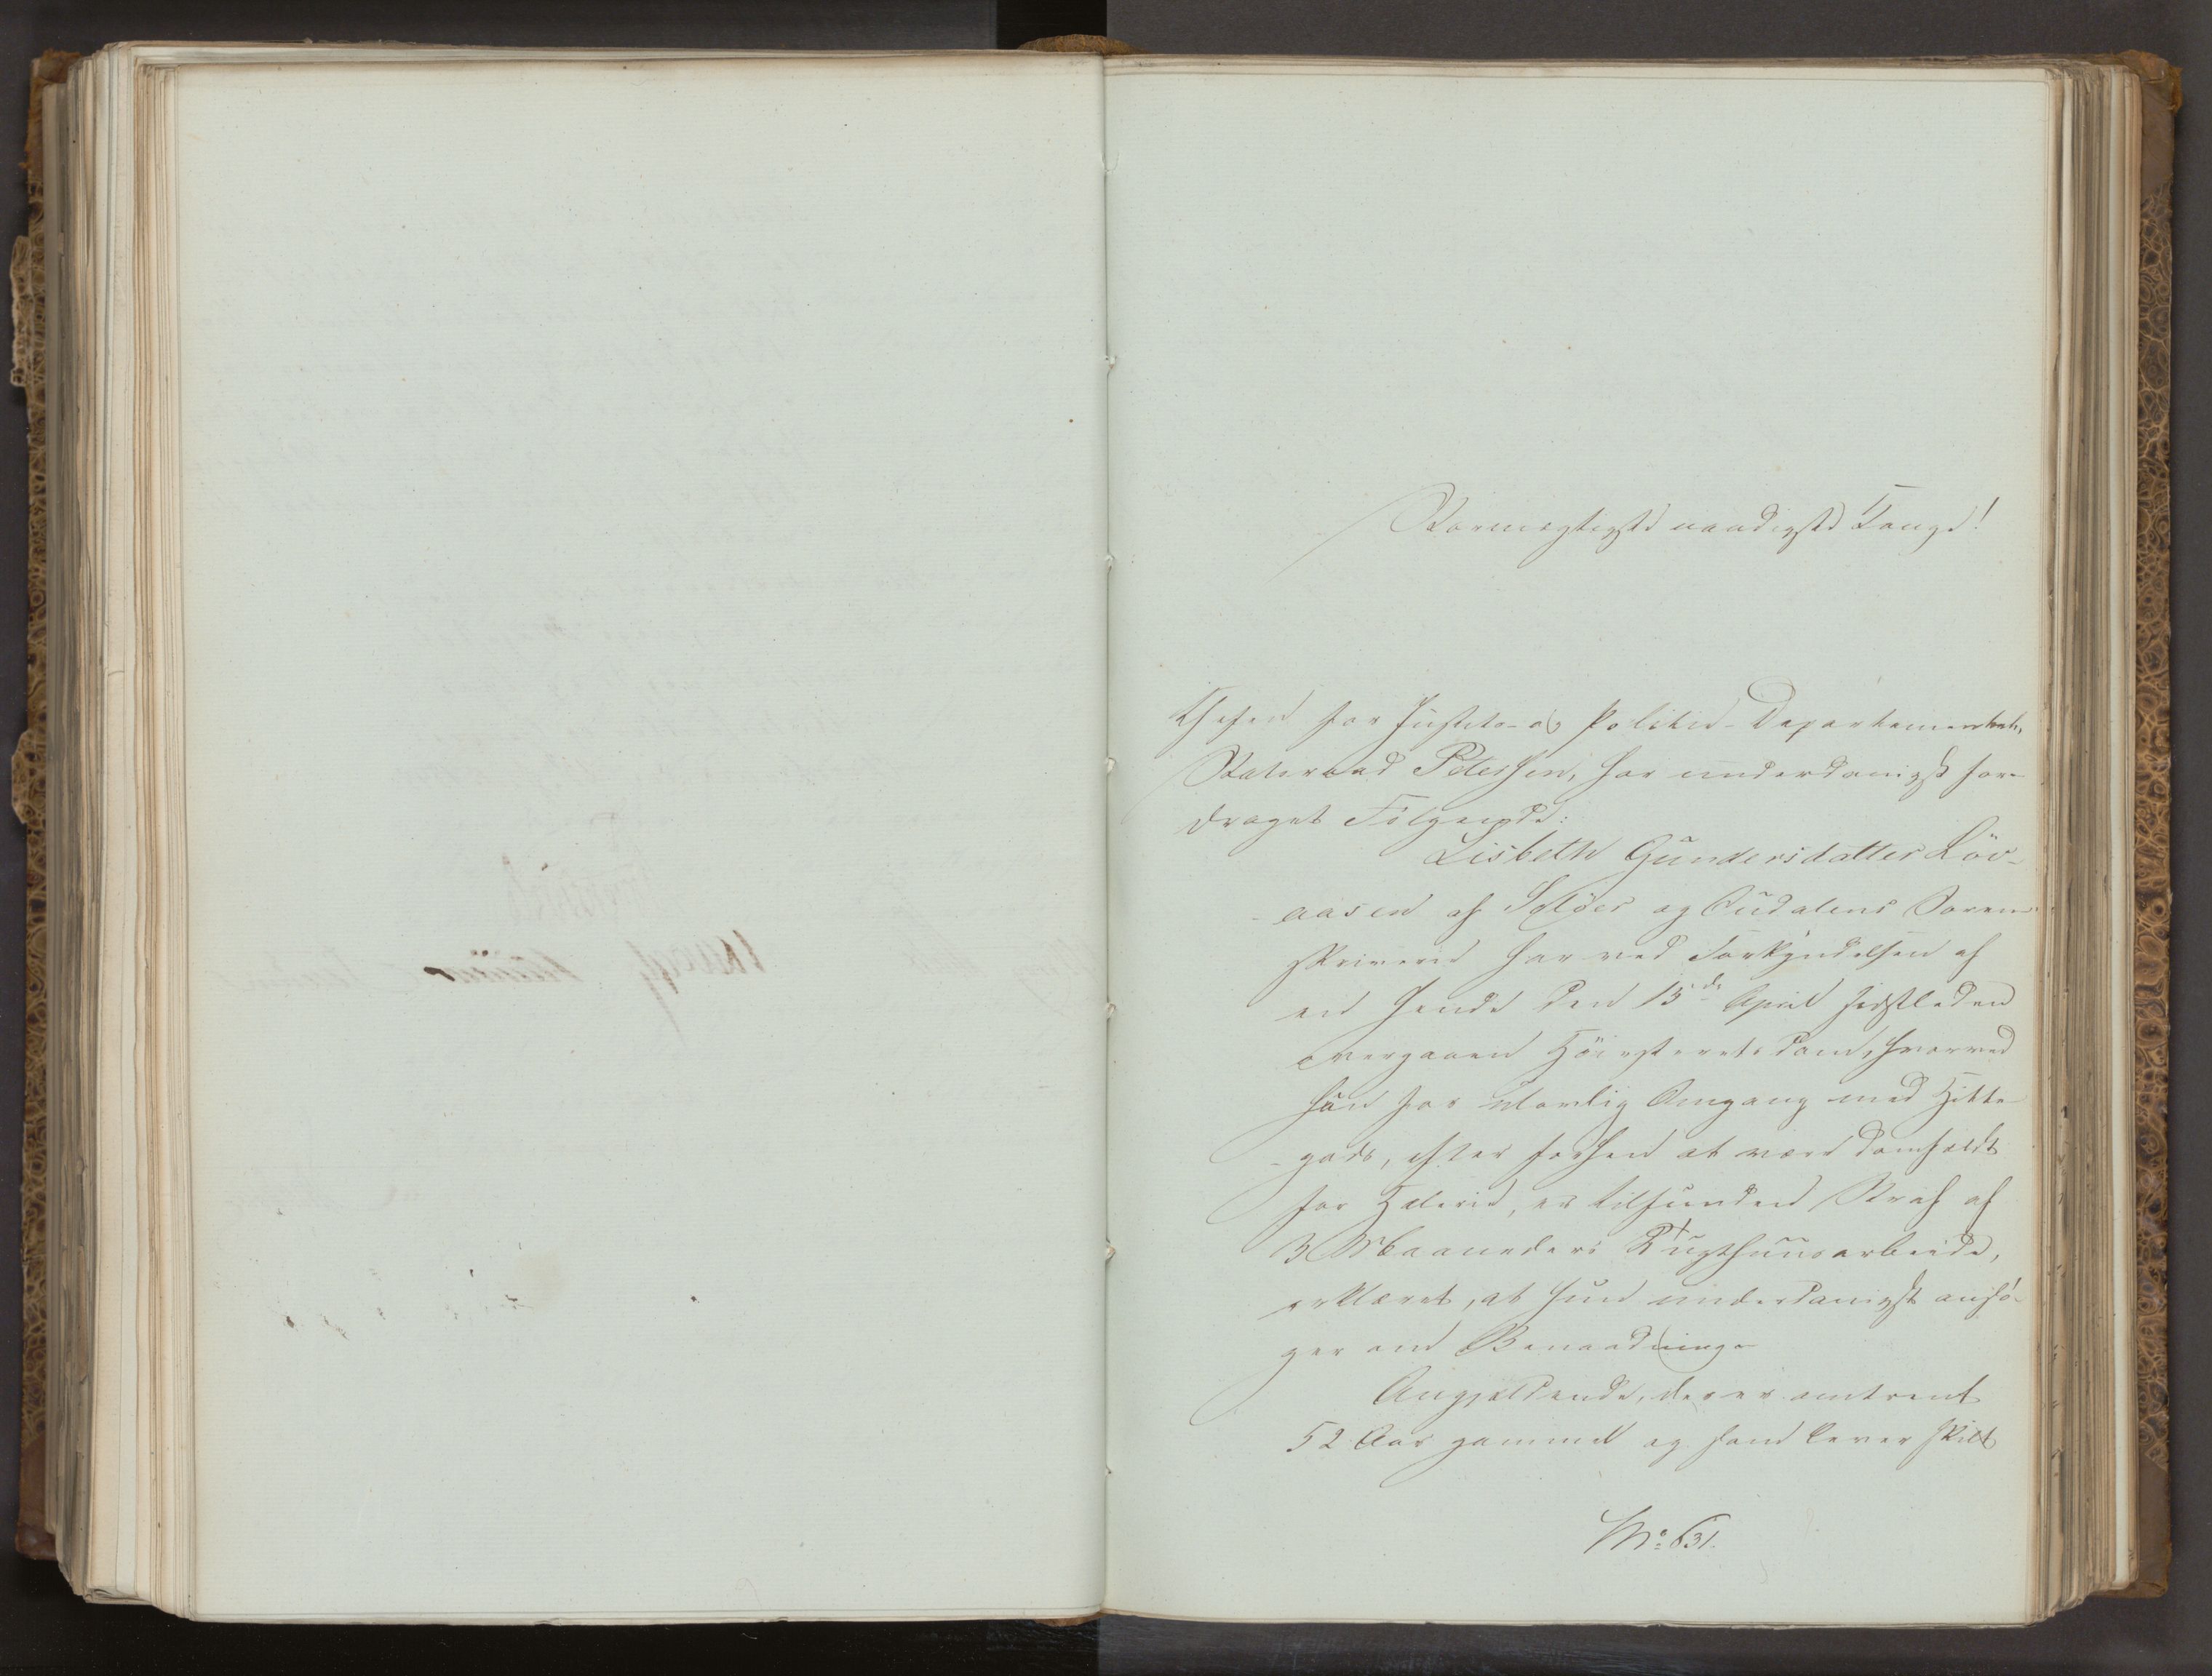 Stormægtigste naadigste Konge!
Chefen for Justits- og Politie-Departementet,
Statsraad Petersen, har underdanigst fore-
draget Følgende:
Lisbeth Gundersdatter Löv-
aasen af Solöer og Oudalens Soren-
skriverie har ved Forkyndelsen af
en hende den 15de April sidstleden
overgaaen Höiesteretsdom, hvorved
hun for ulovlig Omgang med Hitte-
gods, efter forhen at være domfældt
for Hæleri, er tilfunden Straf af
3 Maaneders Tugthuusarbeide,
erklæret, at hun underdanigst ansö-
ger om Benaadning.
Angjældende, der er omtrent
52 Aar gammel og som lever skilt
No 631.